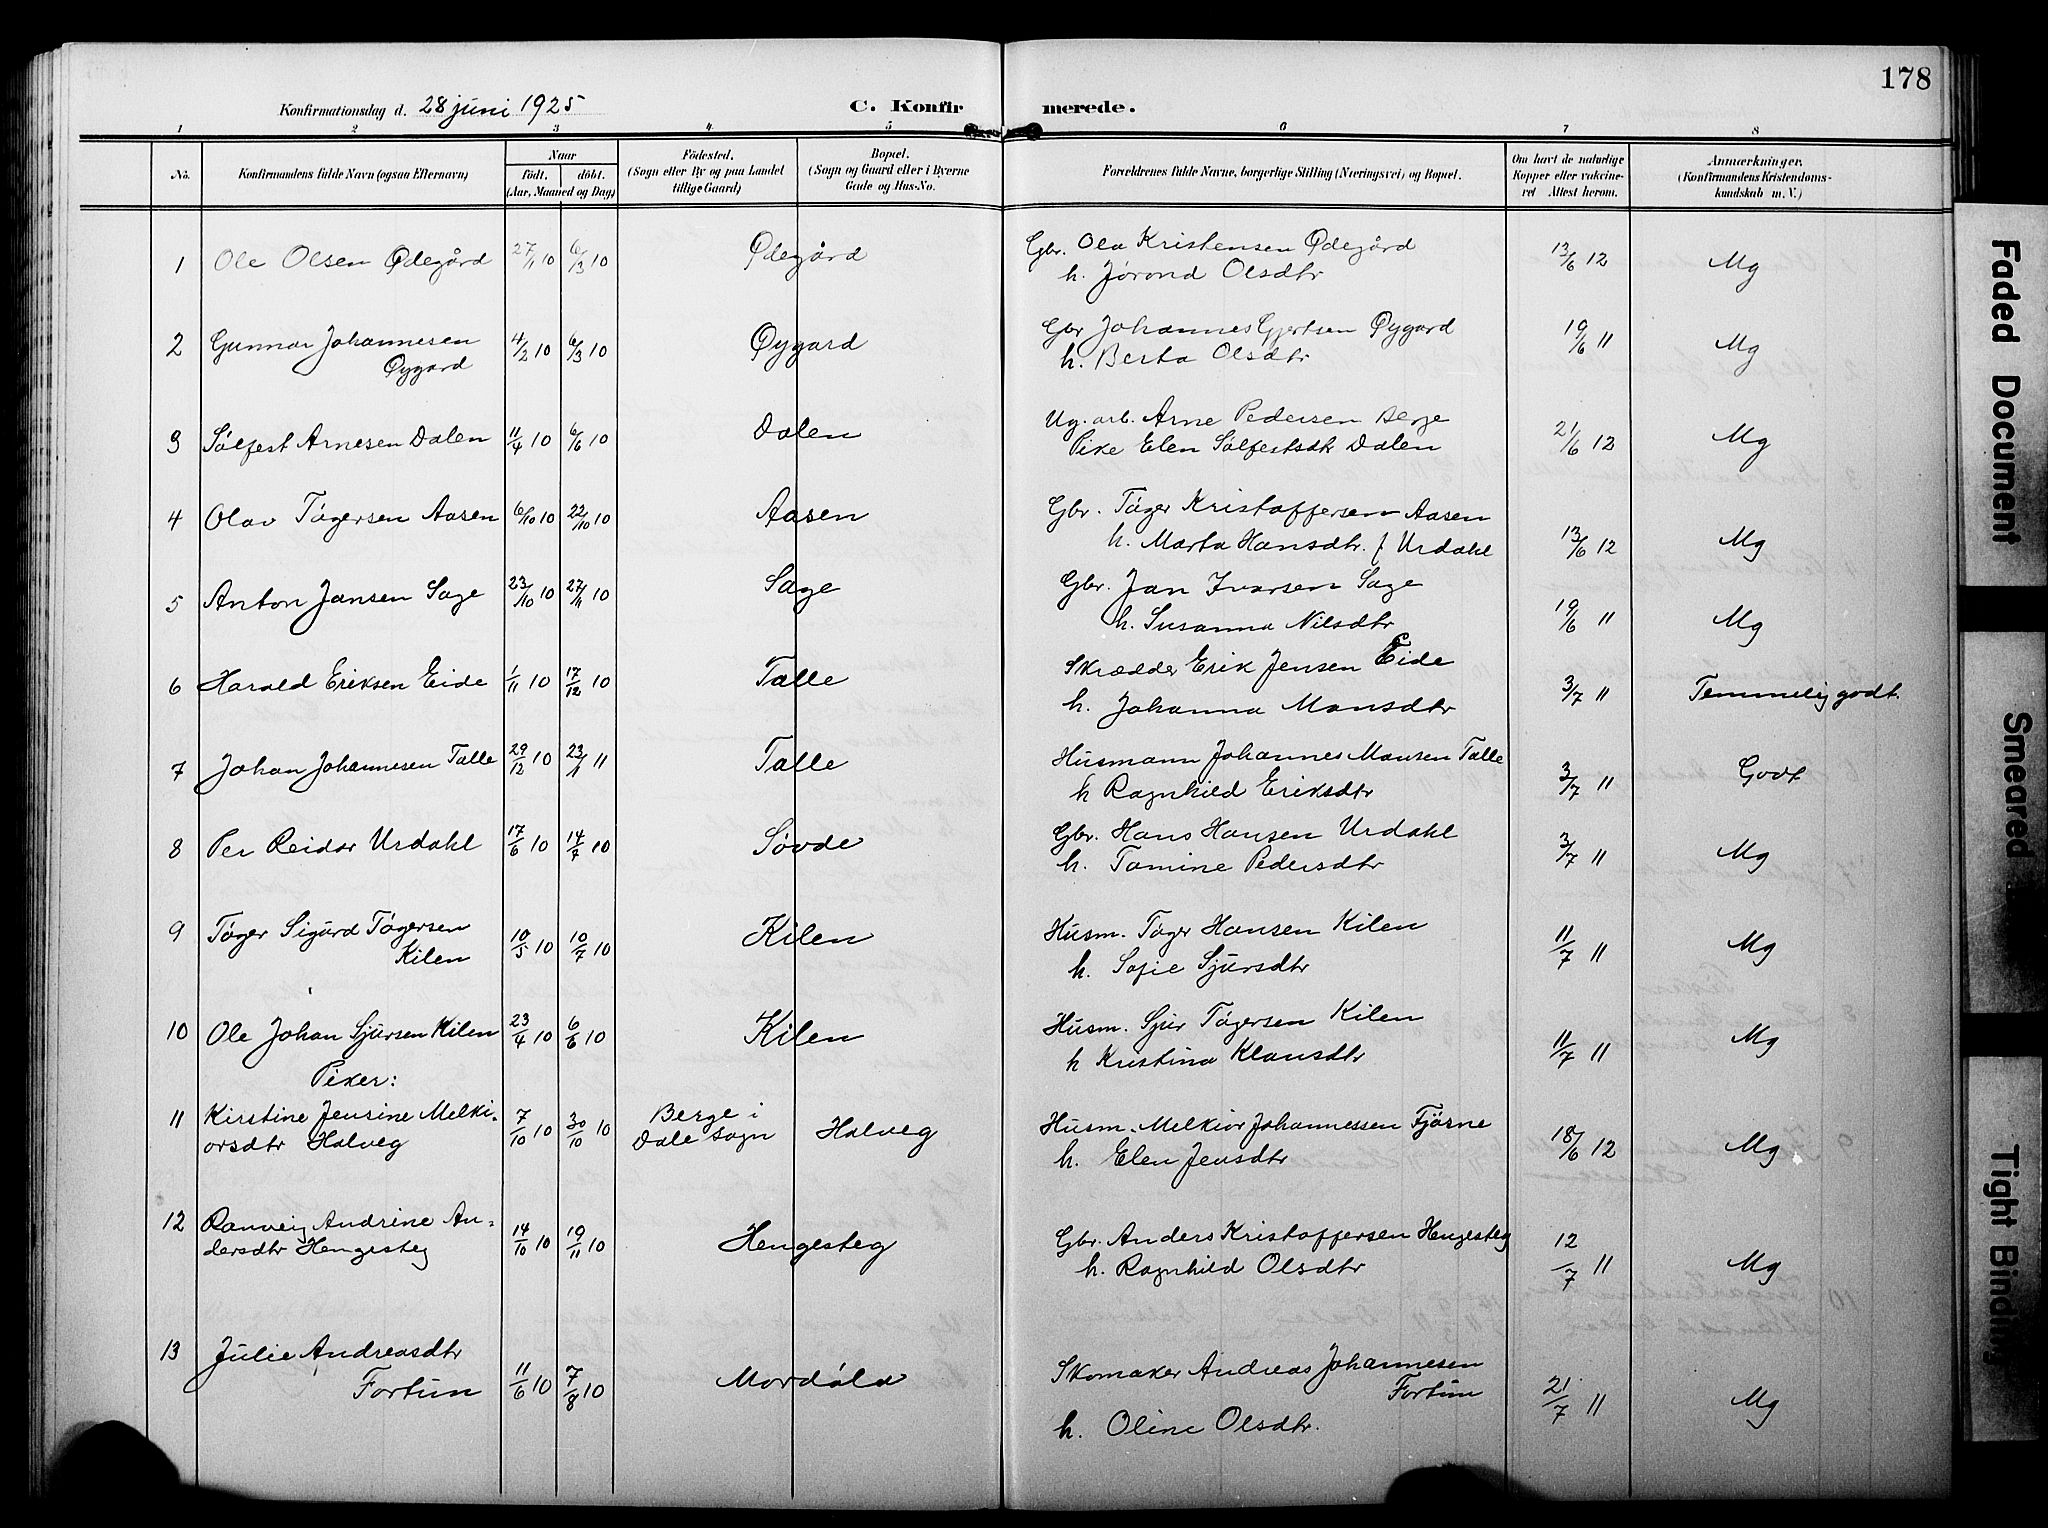 178
Konfirmationsdag d. 28 juni 1925 C. Konfirmerede.
1 2 3 4 5 6 7 8
No. Konfirmandens fulde Navn (ogsaa Efternavn) Naar født, døbt. (Aar, Maaned og Dag) Födested. (Sogn eller By og paa Landet tillige Gaard) Bopæl. (Sogn og Gaard eller i Byerne Gade og Hus-No. Forældrenes fulde Navne, borgerlige Stilling (Næringsvei) og Bopæl. Om havt de naturlige Kopper eller vaccineret Attest herom. Anmærkninger. (Konfirmandens Kristendomskundskab m. V.)
1 Ole Olsen Ødegård 27/1 10 6/3 10 Ødegård Gbr. Ola Kristensen Ødegård 13/6 12 Mg
h. Jørond Olsdtr
2 Gunnar Johannesen 4/2 10 6/3 10 Øygard Gbr Johannes Gjertsen Øygard 19/6 11 Mg
Øygard h. Berta Olsdtr
3 Sølfest Arnesen Dalen 11/4 10 6/6 10 Dalen Ug. arb. Arne Pedersen Berge 21/6 12 Mg
Pike Elen Sølfestsdtr Dalen
4 Olav Tøgersen Aasen 6/10 10 22/10 10 Aasen Gbr. Tøger Kristoffersen Aasen
h. Marta Hansdtr. f Urdahl 13/6 12 Mg
5 Anton Jansen Sage 23/10 10 27/11 10 Sage Gbr. Jan Ivarsen Sage
h. Susanna Nilsdtr 19/6 11 Mg
6 Harald Eriksen Eide 1/11 10 17/12 10 Talle Skrædder Erik Jensen Eide
h. Johanna Monsdtr 3/7 11 Temmelig godt.
7 Johan Johannesen Talle 29/12 10 23/1 11 Talle Husmann Johannes Monsen Talle
h Ragnhild Eriksdtr 3/7 11 Godt
8 Per Reidar Urdahl 17/6 10 14/7 10 Søvde Gbr. Hans Hansen Urdahl
h. Tomine Pedersdtr 3/7 11 Mg
9 Tøger Sigurd Tøgersen 10/5 10 10/7 10 Kilen Husm. Tøger Hansen Kilen
Kilen h. Sofie Sjursdtr 11/7 11 Mg
10 Ole Johan Sjursen Kilen 23/4 10 6/6 10 Kilen Husm. Sjur Tøgersen Kilen
h Kristina Klausdtr 11/7 11 Mg
Piker:
11 Kirstine Jensine Melki- 7/10 10 30/10 10 Berge i Halveg Husm. Melkior Johannessen Fjørne
orsdtr Halveg Dale sogn h. Elen Jensdtr 18/6 12 Mg
12 Ranveig Andrine An- 14/10 10 19/11 10 Hengesteg Gbr. Anders Kristoffersen Hengesteg
dersdtr Hengesteg h. Ragnhild Olsdtr 12/7 11 Mg
13 Julie Andreasdtr 11/6 10 7/8 10 Mordøla Skomaker Andreas Johannesen
Fortun Fortun 21/7 11 Mg
h. Oline Olsdtr.
Faded Document
Smeared
Tight Binding